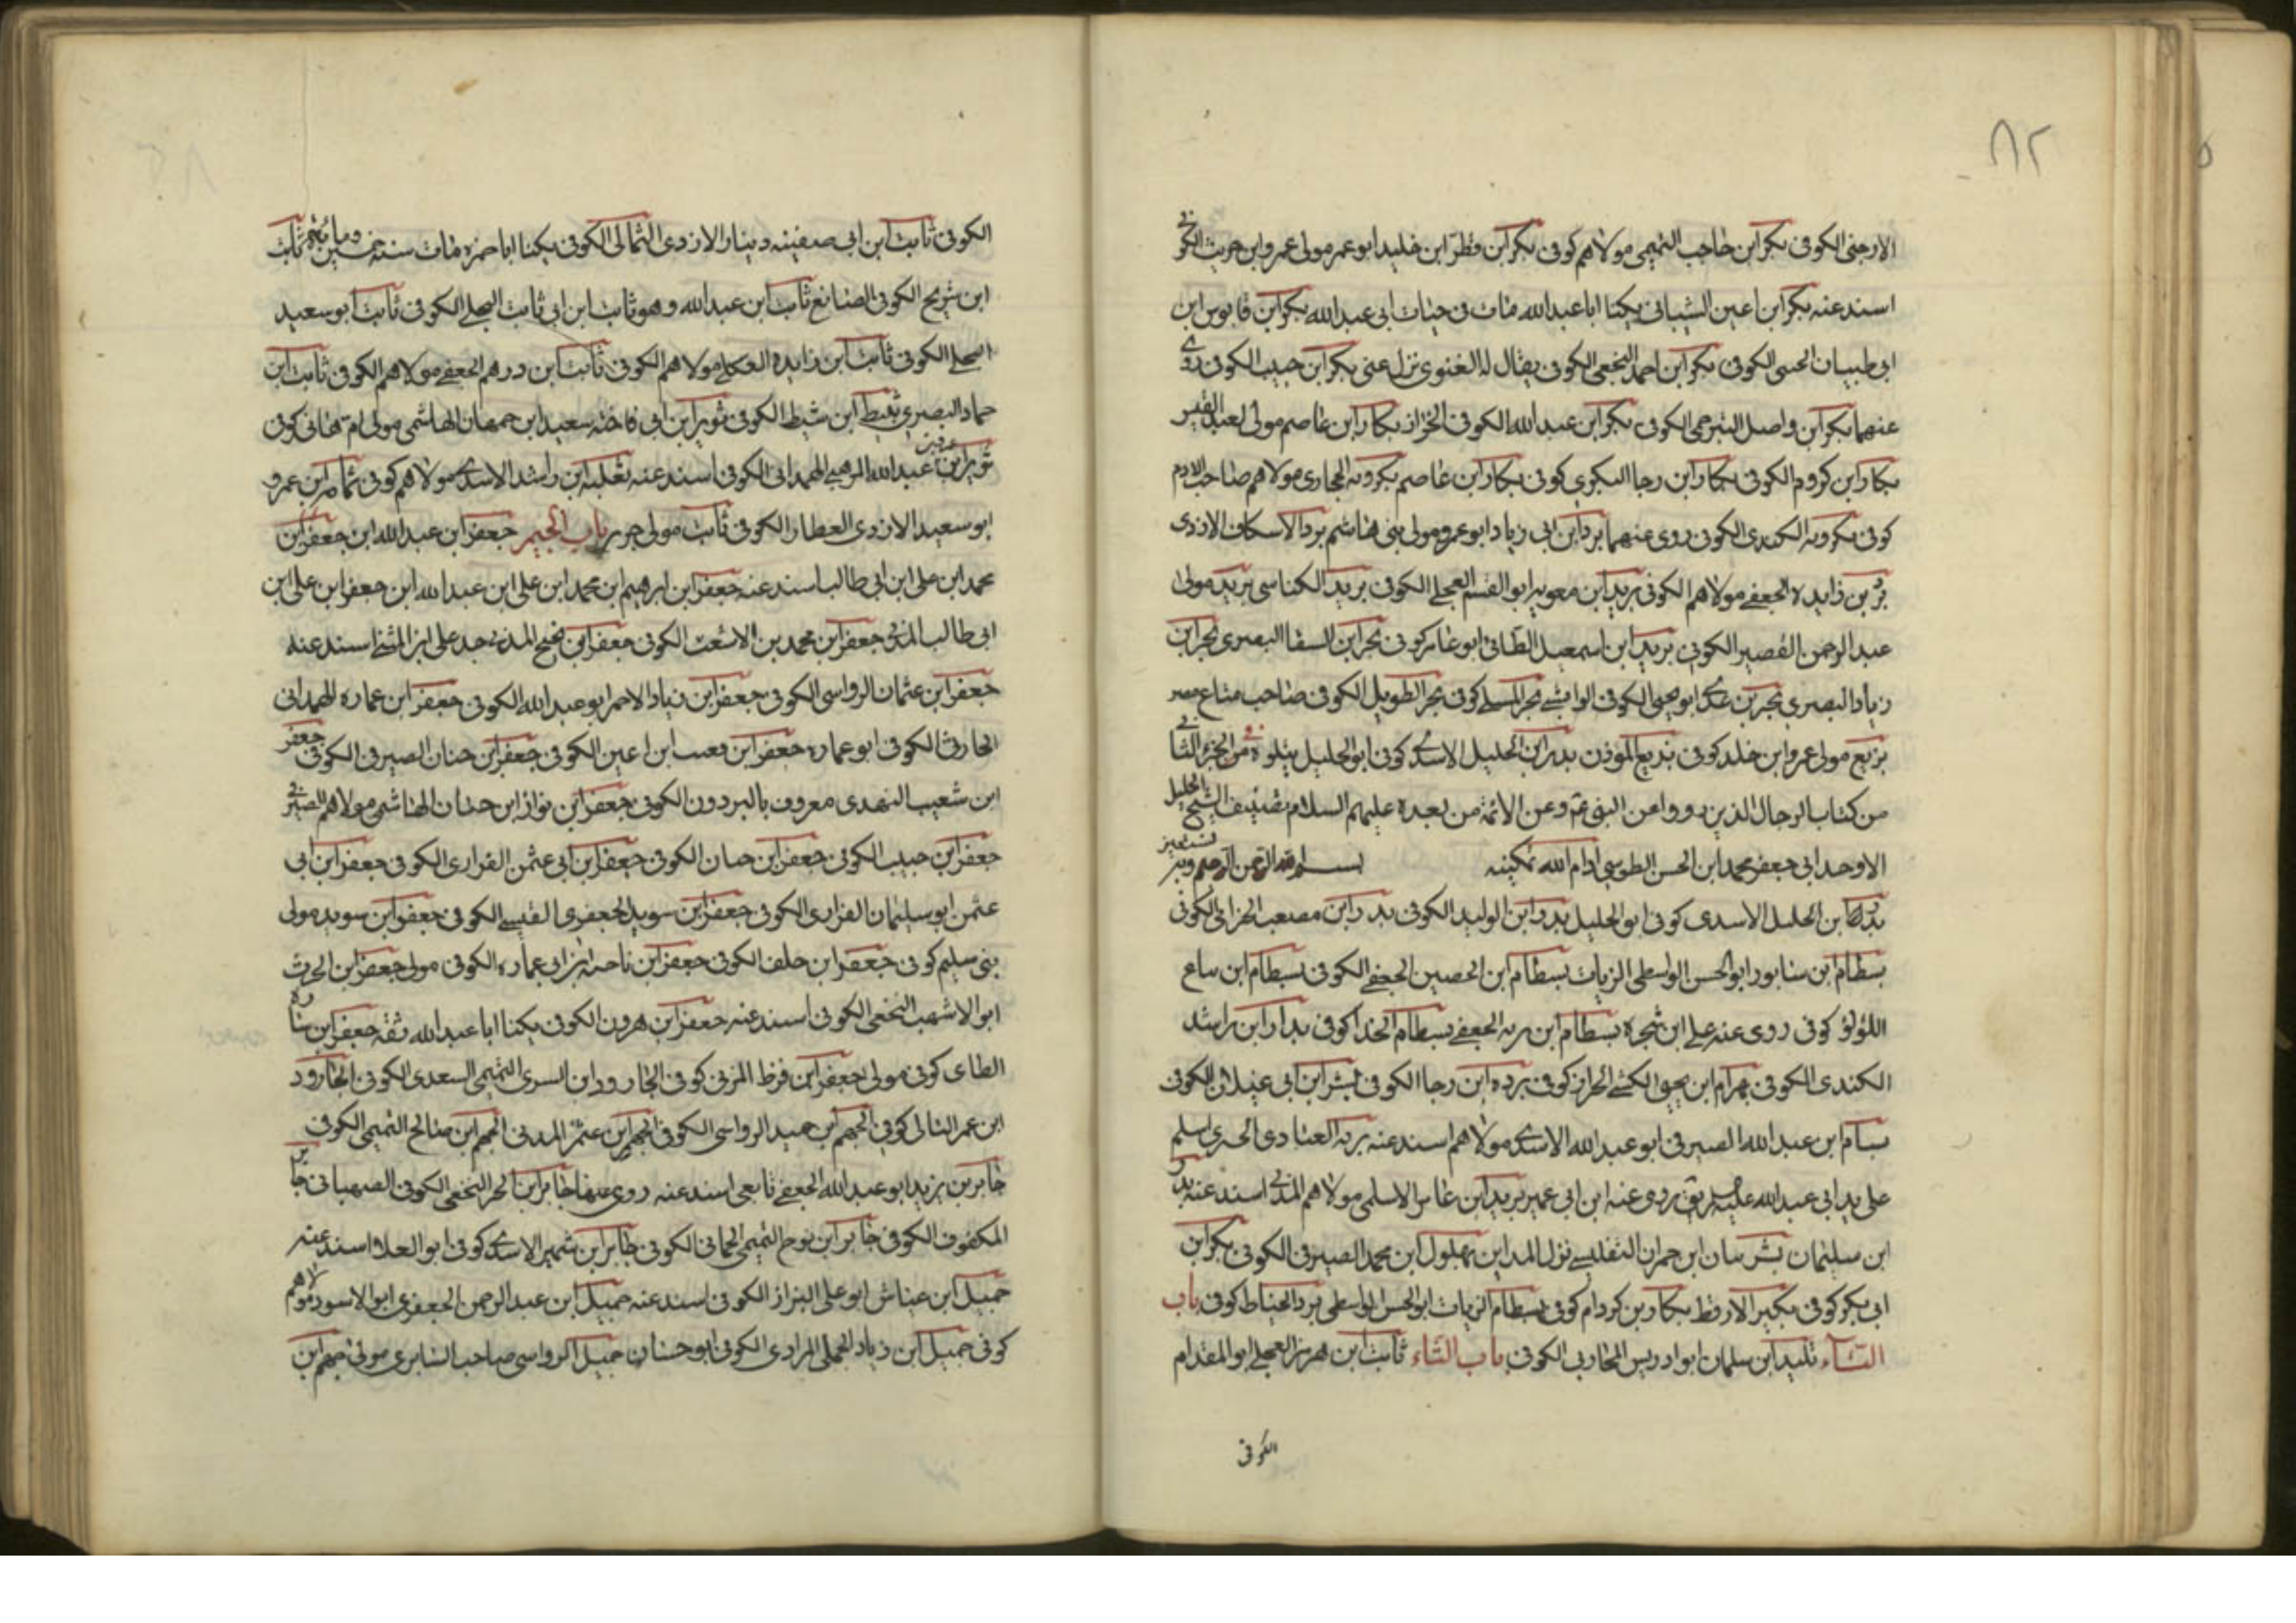 ٨٢
الارجنى الكوفى بكر ابن حاجب التميمى مولاهم كوفى بكر ابن فطر ابن خليد ابو عمر مولى عمرو ابن حريث الكوفى
اسند عنه بكر ابن اعين الشيبانى يكنا ابا عبد الله مات فى حيات ابى عبد الله بكر ابن قابوس ابن
ابى طبيان الجنبى الكوفى بكر ابن احمد النخعى الكوفى يقال له الغنوى نزل عنى بكر ابن حبيب الكوفى روى
عنهما بكر ابن واصل البرجمى الكوفى بكر ابن عبد الله الكوفى الخزاز بكار ابن عاصم مولى لعبد القيس
بكار ابن كردم الكوفى بكار ابن رجا اليكرى كوفى بكار ابن عاصم بكرويه المحاربى مولاهم صاحب الادم
كوفى بكرويه الكندى الكوفى روى عنهما برد ابن ابى زياد ابو عمرو مولى بنى هاشم برد الاسكاف الازدى
بر بن زايده الجعفى مولاهم الكوفى بريد ابن معويه ابو القسم العجلى الكوفى بريد الكناسى بريد مولى
عبد الرحمن القصير الكوفى بريد ابن اسمعيل الطائى ابو عامر كوفى بحر ابن السقا البصرى بحر ابن
زياد البصرى بحر بن عدى ابو يحيى الكوفى الوابشى بحر المسلى كوفى بحر الطويل الكوفى صاحب متاع مصر
بزيع مولى عمرو ابن خلد كوفى بزيع المؤذن بدر ابن الخليل الاسدى كوفى ابو الخليل يتلوه من الجزء الثانى
من كتاب الرجال الذين رووا عن النبى ع م وعن الائمة من بعده عليهم السلام تصنيف الشيخ الجليل
الاوحد ابى جعفر محمد ابن الحسن الطوسى ادام الله تمكينه بسم الله الرحمن الرحيم وبه نستعين
بدر ابن الخليل الاسدى كوفى ابو الخليل بدر ابن الوليد الكوفى بدر ابن مصعب الخزاعى الكوفى
بسطام ابن سابور ابو الحسن الواسطى الزيات بسطام ابن الحصين الجعفى الكوفى بسطام ابن بياع
اللؤلؤ كوفى روى عنه على ابن شجره بسطام ابن مره الجعفى بسطام الحذا كوفى بدار ابن راشد
الكندى الكوفى بهرام ابن يحيى الكشى الخزاز كوفى برده ابن رجا الكوفى بشر ابن ابى غيلان الكوفى
بسام ابن عبد الله الصيرفى ابو عبد الله الاسدى مولاهم اسند عنه بريه العبادى الحيرى اسلم
على يد ابى عبد الله عليه روى عنه ابن ابى عمير بريد ابن عامر الاسلمى مولاهم المدنى اسند عنه بدر
ابن سليمان بشر بيان ابن حمران التفليسى نزل المداين بهلول ابن محمد الصيرفى الكوفى بكر ابن
ابى بكر كوفى بكير الارقط بكار بن كردام كوفى بسطام الزيات ابو الحسن الواسطى برد الخياط كوفى باب
التاء تليد ابن سلمان ابو ادريس المحاربى الكوفى باب الثاء ثابت ابن هرمز العجلى ابو المقدام
الكوفى
الكوفى ثابت ابن ابى صفينه دينار الازدى الثمالى الكوفى يكنا ابا حمزه مات سنه خمسين ومائة ثابت
ابن شريح الكوفى الصائغ ثابت ابن عبد الله وهو ثابت ابن ابى ثابت البجلى الكوفى ثابت ابو سعيد
البجلى الكوفى ثابت ابن زايده العكلى مولاهم الكوفى ثابت ابن درهم الجعفى مولاهم الكوفى ثابت ابن
حماد البصرى ثبيط ابن شيط الكوفى ثوير ابن ابى فاخته سعيد ابن جمهان الهاشمى مولى ام هانى كوفى
ثوير ابن عبد الله المرهبى الهمدانى الكوفى اسند عنه ثعلبه ابن راشد الاسدى مولاهم كوفى ثمامه ابن عمرو
ابو سعيد الازدى العطار الكوفى ثابت مولى جرير باب الجيم جعفر ابن عبد الله ابن جعفر ابن
محمد ابن على ابن ابى طالب اسند عنه جعفر ابن ابرهيم ابن محمد ابن على ابن عبد الله ابن جعفر ابن على ابن
ابى طالب المدنى جعفر ابن محمد بن الاشعث الكوفى جعفر ابن نجيح المدنى جد على ابن المثنى اسند عنه
جعفر ابن عثمان الرواسى الكوفى جعفر ابن زياد الاحمر ابو عبد الله الكوفى جعفر ابن عماره الهمدانى
الخارفى الكوفى ابو عماره جعفر ابن قعنب ابن اعين الكوفى جعفر ابن حنان الصيرفى الكوفى جعفر
ابن شعيب النهدى معروف بالبردون الكوفى جعفر ابن نوار ابن حنان الهاشمى مولاهم الصيرفى
جعفر ابن حبيب الكوفى جعفر ابن حيان الكوفى جعفر ابن ابى عثمن الفزارى الكوفى جعفر ابن ابى
عثمن ابو سليمان الفزارى الكوفى جعفر ابن سويد الجعفرى القيسى الكوفى جعفر ابن سويد مولى
بنى سليم كوفى جعفر ابن خلف الكوفى جعفر ابن ناجيه ابن ابى عماره الكوفى مولى جعفر ابن الحرث
ابو الاشهب النخعى الكوفى اسند عنه جعفر ابن هرون الكوفى يكنا ابا عبد الله ثقة جعفر ابن ساره
الطاى كوفى مولى جعفر ابن قرط المزنى كوفى الجارود ابن السرى التميمى السعدى الكوفى الجارود
ابن عمر الثمالى كوفى الجهم ابن حميد الرواسى الكوفى الجهم ابن عثمن المدنى الجهم ابن صالح التميمى الكوفى
جابر بن يزيد ابو عبد الله الجعفى تابعى اسند عنه روى عنهما جابر ابن الحر النخعى الكوفى الصهبانى جابر
المكفوف الكوفى جابر ابن نوح التميمى الحمانى الكوفى جابر ابن شمير الاسدى كوفى ابو العلا اسند عنه
جميل ابن عياش ابو على البزاز الكوفى اسند عنه جميل ابن عبد الرحمن الجعفرى ابو الاسود مولاهم
كوفى جميل ابن زياد الجملى المرادى الكوفى ابو حسان جميل الرواسى صاحب السابرى مولى جهم ابن